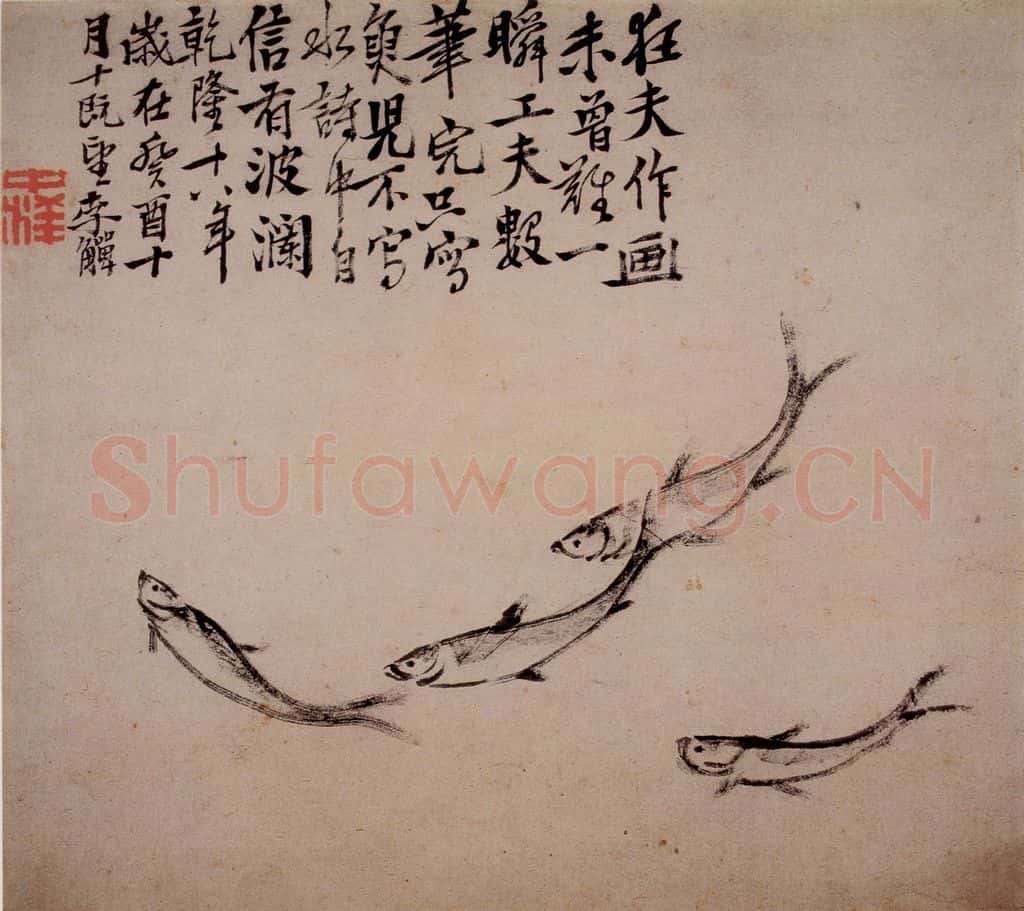 狂夫作画
未曾難一
瞬工夫數
筆完只寫
魚兒不寫
水詩中自
信有波瀾
乾隆十八年
歲在癸酉十
月十既望李觶
中洋
Shufawang.CN